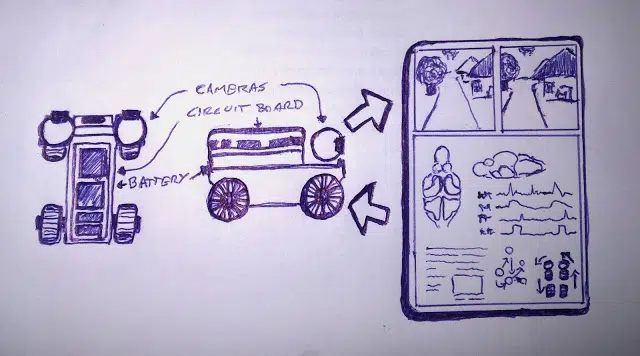 CAMERAS
CIRCUIT BOARD
BATTERY